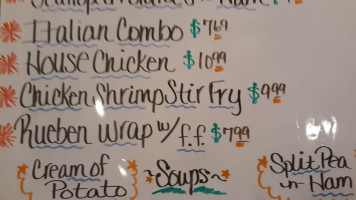 Italian Combo $7.69
House Chicken $10.99
Chicken Shrimp Stir Fry $9.99
Rueben Wrap w/ f.f. $7.99
Cream of Potato
~Soups~
Split Pea n Ham